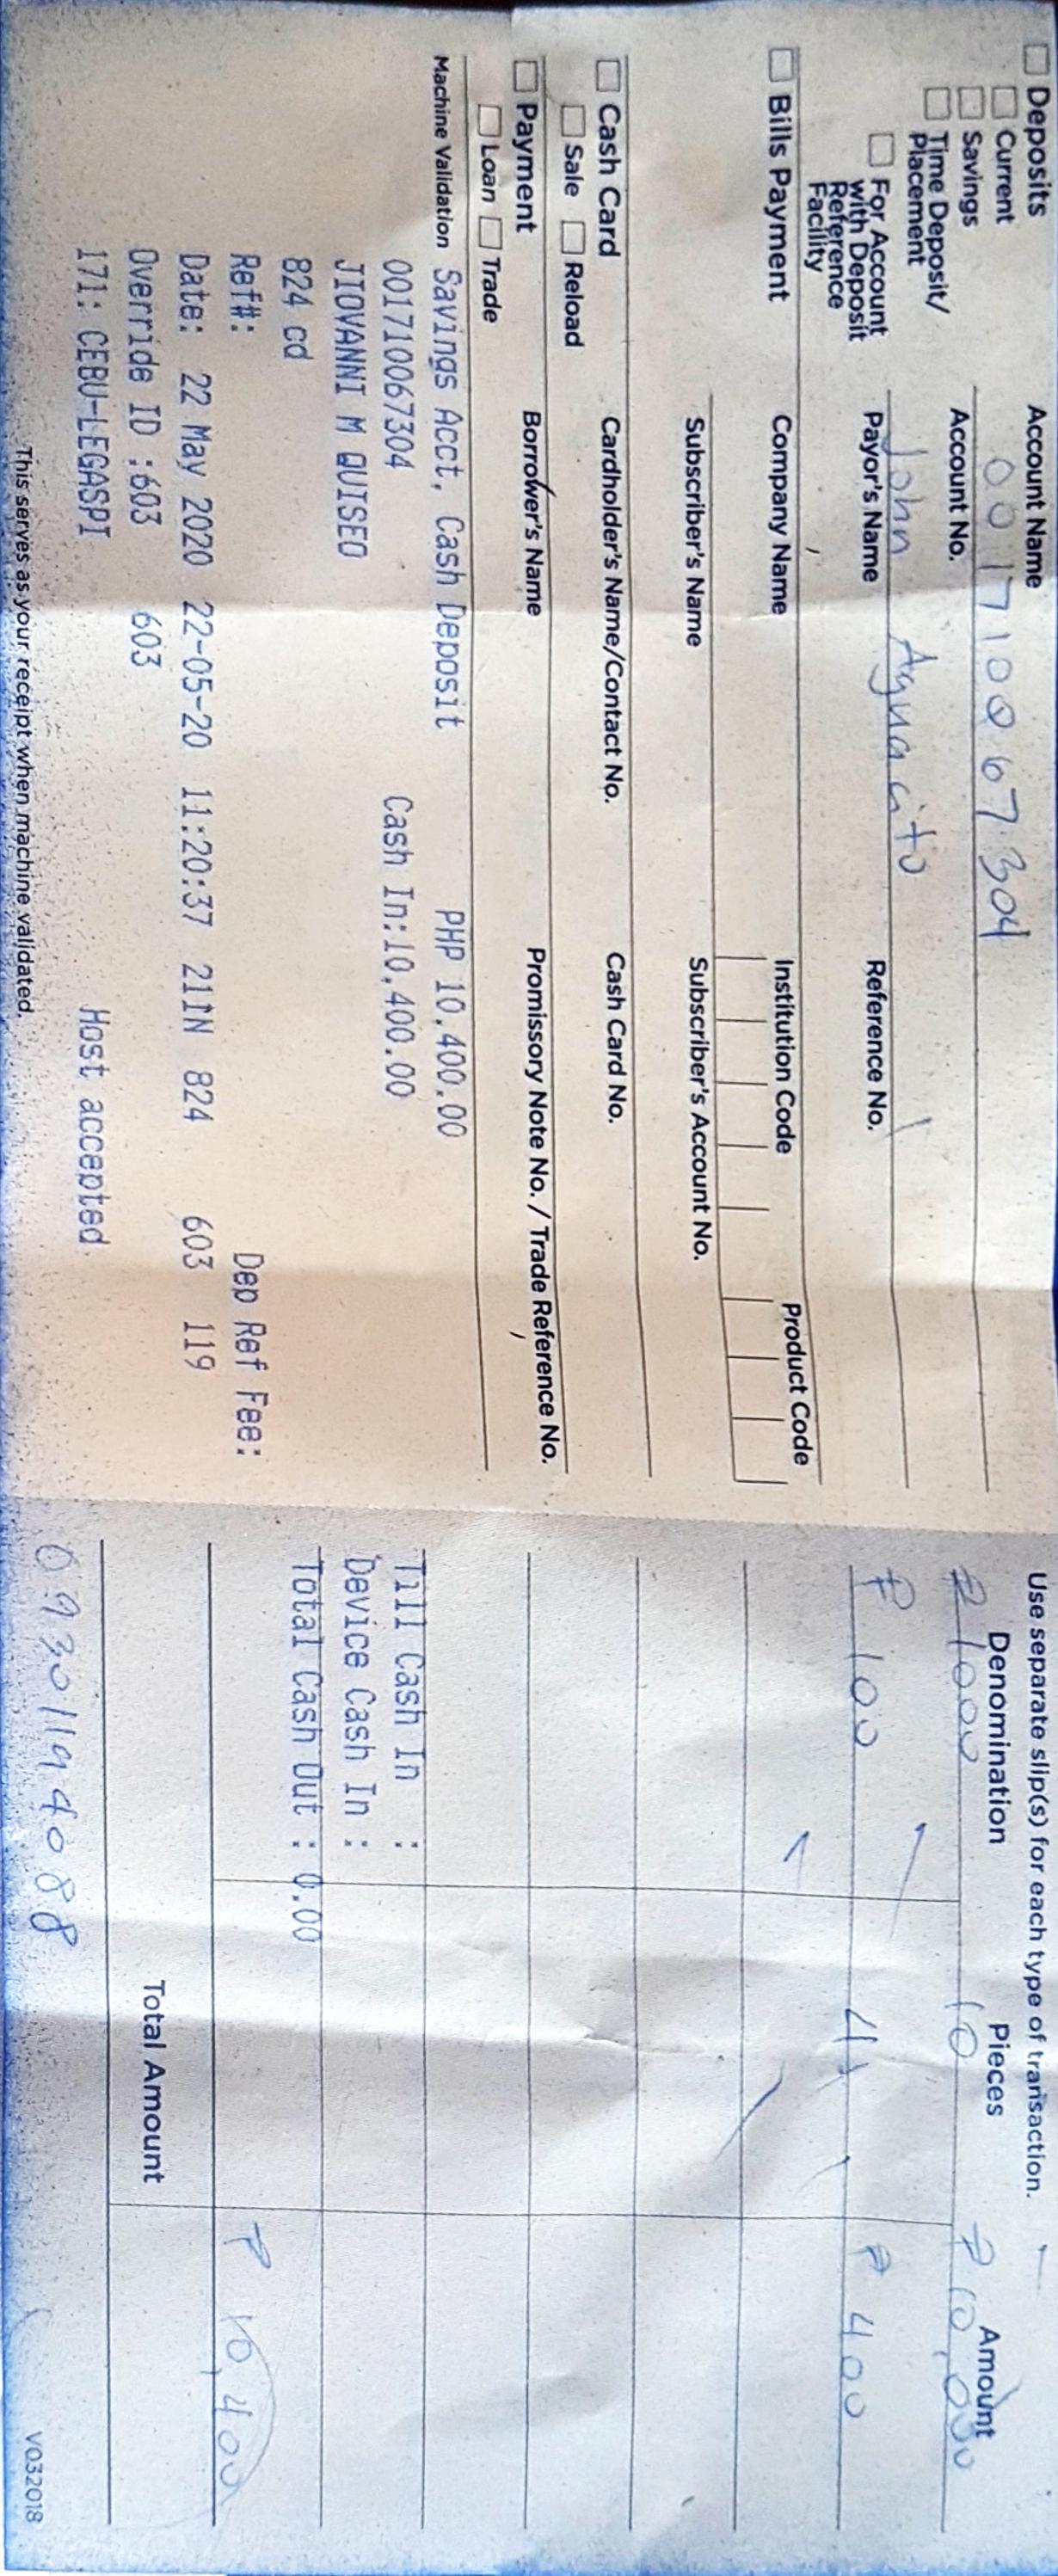 Deposits
Current
Savings
Time Deposit/
Placement
For Account
with Deposit
Reference
Facility
Account Name
001710067304
Account No.
John Aguacito
Payor's Name
Reference No.
Bills Payment
Company Name
Institution Code
Product Code
Subscriber's Name
Subscriber's Account No.
Cash Card
Sale
Reload
Cardholder's Name/Contact No.
Cash Card No.
Payment
Loan
Trade
Borrower's Name
Promissory Note No. / Trade Reference No.
Machine Validation
Savings Acct, Cash Deposit PHP 10,400.00
001710067304 Cash In:10,400.00
JIOVANNI M QUISEO
824 cd
Ref#: Dep Ref Fee:
Date: 22 May 2020 22-05-20 11:20:37 211N 824 603 119
Override ID :603 603
171: CEBU-LEGASPI Host accepted
This serves as your receipt when machine validated.
Use separate slip(s) for each type of transaction.
Denomination Pieces Amount
₱ 1000 10 ₱ 10,000
₱ 100 4 ₱ 400
Till Cash In :
Device Cash In :
Total Cash Out : 0.00
₱ 10,400
Total Amount
09301194088
V032018